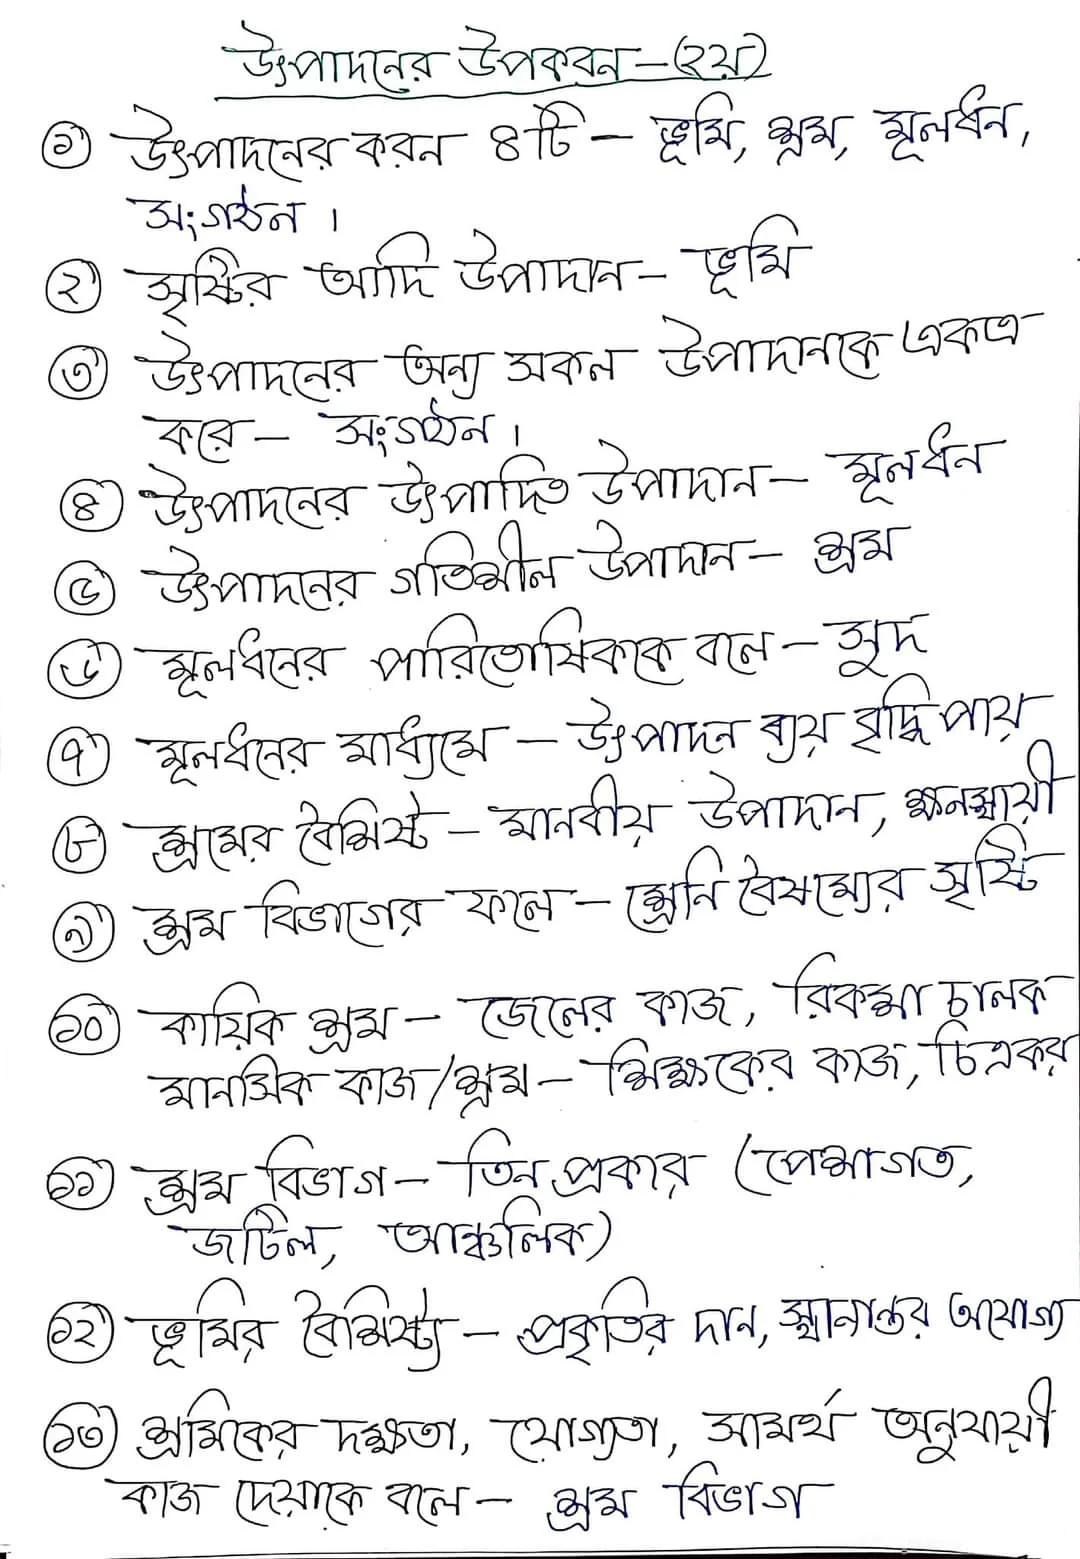 উৎপাদনের উপকরন – (২য়)
① উৎপাদনের করন ৪টি – ভূমি, শ্রম, মূলধন,
সংগঠন।
② সৃষ্টির আদি উপাদান – ভূমি
③ উৎপাদনের অন্য সকল উপাদানকে একত্র
করে – সংগঠন।
④ উৎপাদনের উৎপাদিত উপাদান – মূলধন
⑤ উৎপাদনের গতিশীল উপাদান – শ্রম
⑥ মূলধনের পারিতোষিককে বলে – সুদ
⑦ মূলধনের মাধ্যমে – উৎপাদন ব্যয় বৃদ্ধি পায়
⑧ শ্রমের বৈশিষ্ট – মানবীয় উপাদান, ক্ষনস্থায়ী
⑨ শ্রম বিভাগের ফলে – শ্রেনি বৈষম্যের সৃষ্টি
⑩ কায়িক শ্রম – জেলের কাজ, রিকশা চালক
মানসিক কাজ/শ্রম – শিক্ষকের কাজ, চিত্রকর
⑪ শ্রম বিভাগ – তিন প্রকার (পেশাগত,
জটিল, আঞ্চলিক)
⑫ ভূমির বৈশিষ্ট্য – প্রকৃতির দান, স্থানান্তর অযোগ্য
⑬ শ্রমিকের দক্ষতা, যোগ্যতা, সামর্থ অনুযায়ী
কাজ দেয়াকে বলে – শ্রম বিভাগ